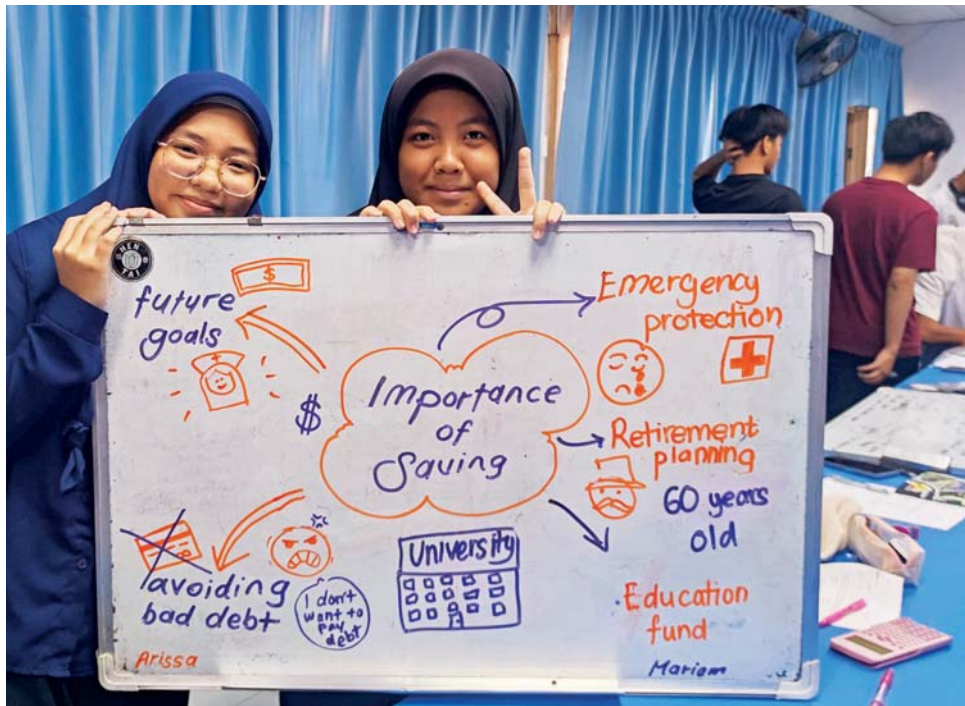 future
goals
$
$
Importance
of
Saving
Emergency
protection
Retirement
planning
60 years
old
Education
fund
University
avoiding
bad debt
I don't
want to
pay
debt
Arissa
Mariam